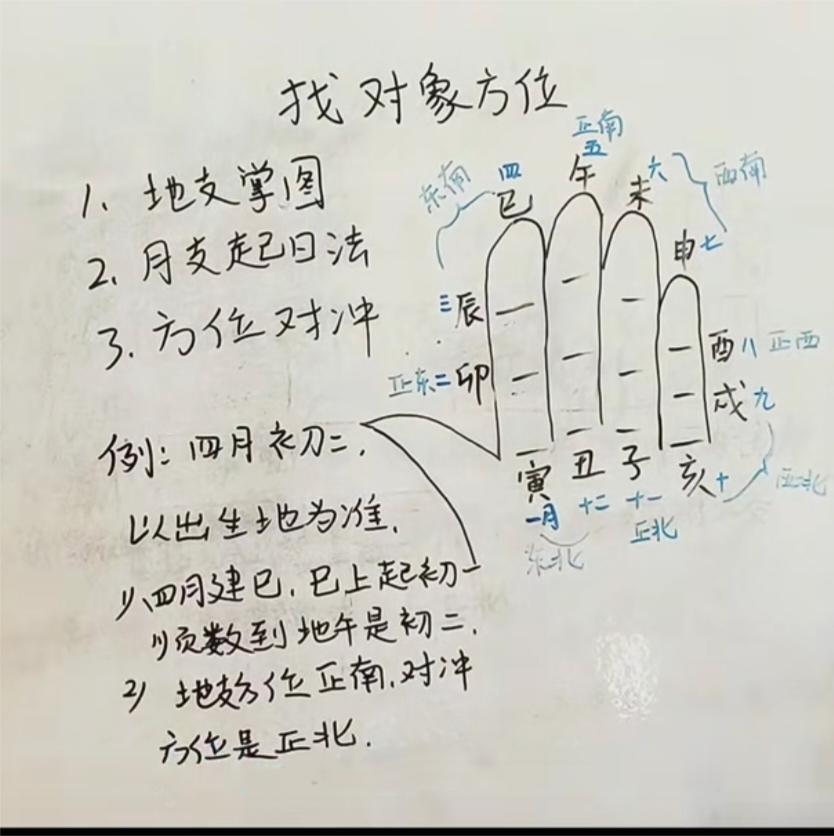 找对象方位
1、地支掌图
2、月支起日法
3、方位对冲
例：四月初二，
以出生地为准，
1）、四月建巳，巳上起初一
顺数到地午是初二，
2） 地支方位正南，对冲
方位是正北.
正南
五
午
东南
四
巳
未 六
西南
申 七
三 辰
正东 二 卯
酉 八 正西
戌 九
寅
一月
丑
十二
东北
子
十一
正北
亥 十
西北